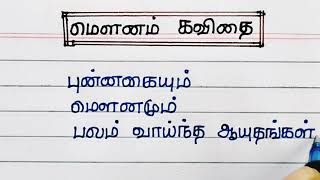 மௌனம் கவிதை
புன்னகையும்
மௌனமும்
பலம் வாய்ந்த ஆயுதங்கள்